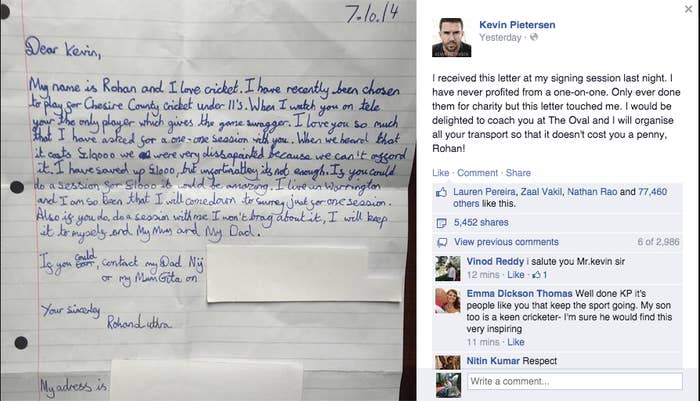 7.10.14
Dear Kevin,
My name is Rohan and I love cricket. I have recently been chosen
to play for Chesire County cricket under 11's. When I watch you on tele
your the only player which gives the game swagger. I love you so much
that I have asked for a one-one session with you. When we heard that
it costs £1,9000 we were very dissapointed because we can't afford
it. I have saved up £1000, but unfortinalley its not enough. If you could
do a session for £1000 it would be amazing. I live in Warrington
and I am so keen that I will come down to Surrey just for one session.
Also if you do, do a session with me I won't brag about it, I will keep
it to myself and My Mum and My Dad.
If you could, contact my Dad Nij
or my Mum Gita on
Your sincerley
Rohan Luthra
My adress is
Kevin Pietersen
Yesterday ·
I received this letter at my signing session last night. I
have never profited from a one-on-one. Only ever done
them for charity but this letter touched me. I would be
delighted to coach you at The Oval and I will organise
all your transport so that it doesn't cost you a penny,
Rohan!
Like · Comment · Share
Lauren Pereira, Zaal Vakil, Nathan Rao and 77,460
others like this.
5,452 shares
View previous comments 6 of 2,986
Vinod Reddy i salute you Mr.kevin sir
12 mins · Like · 1
Emma Dickson Thomas Well done KP it's
people like you that keep the sport going. My son
too is a keen cricketer- I'm sure he would find this
very inspiring
11 mins · Like
Nitin Kumar Respect
Write a comment...